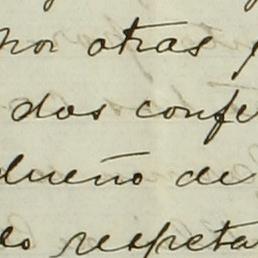 por otras
dos confe
dueño de
lo respeta